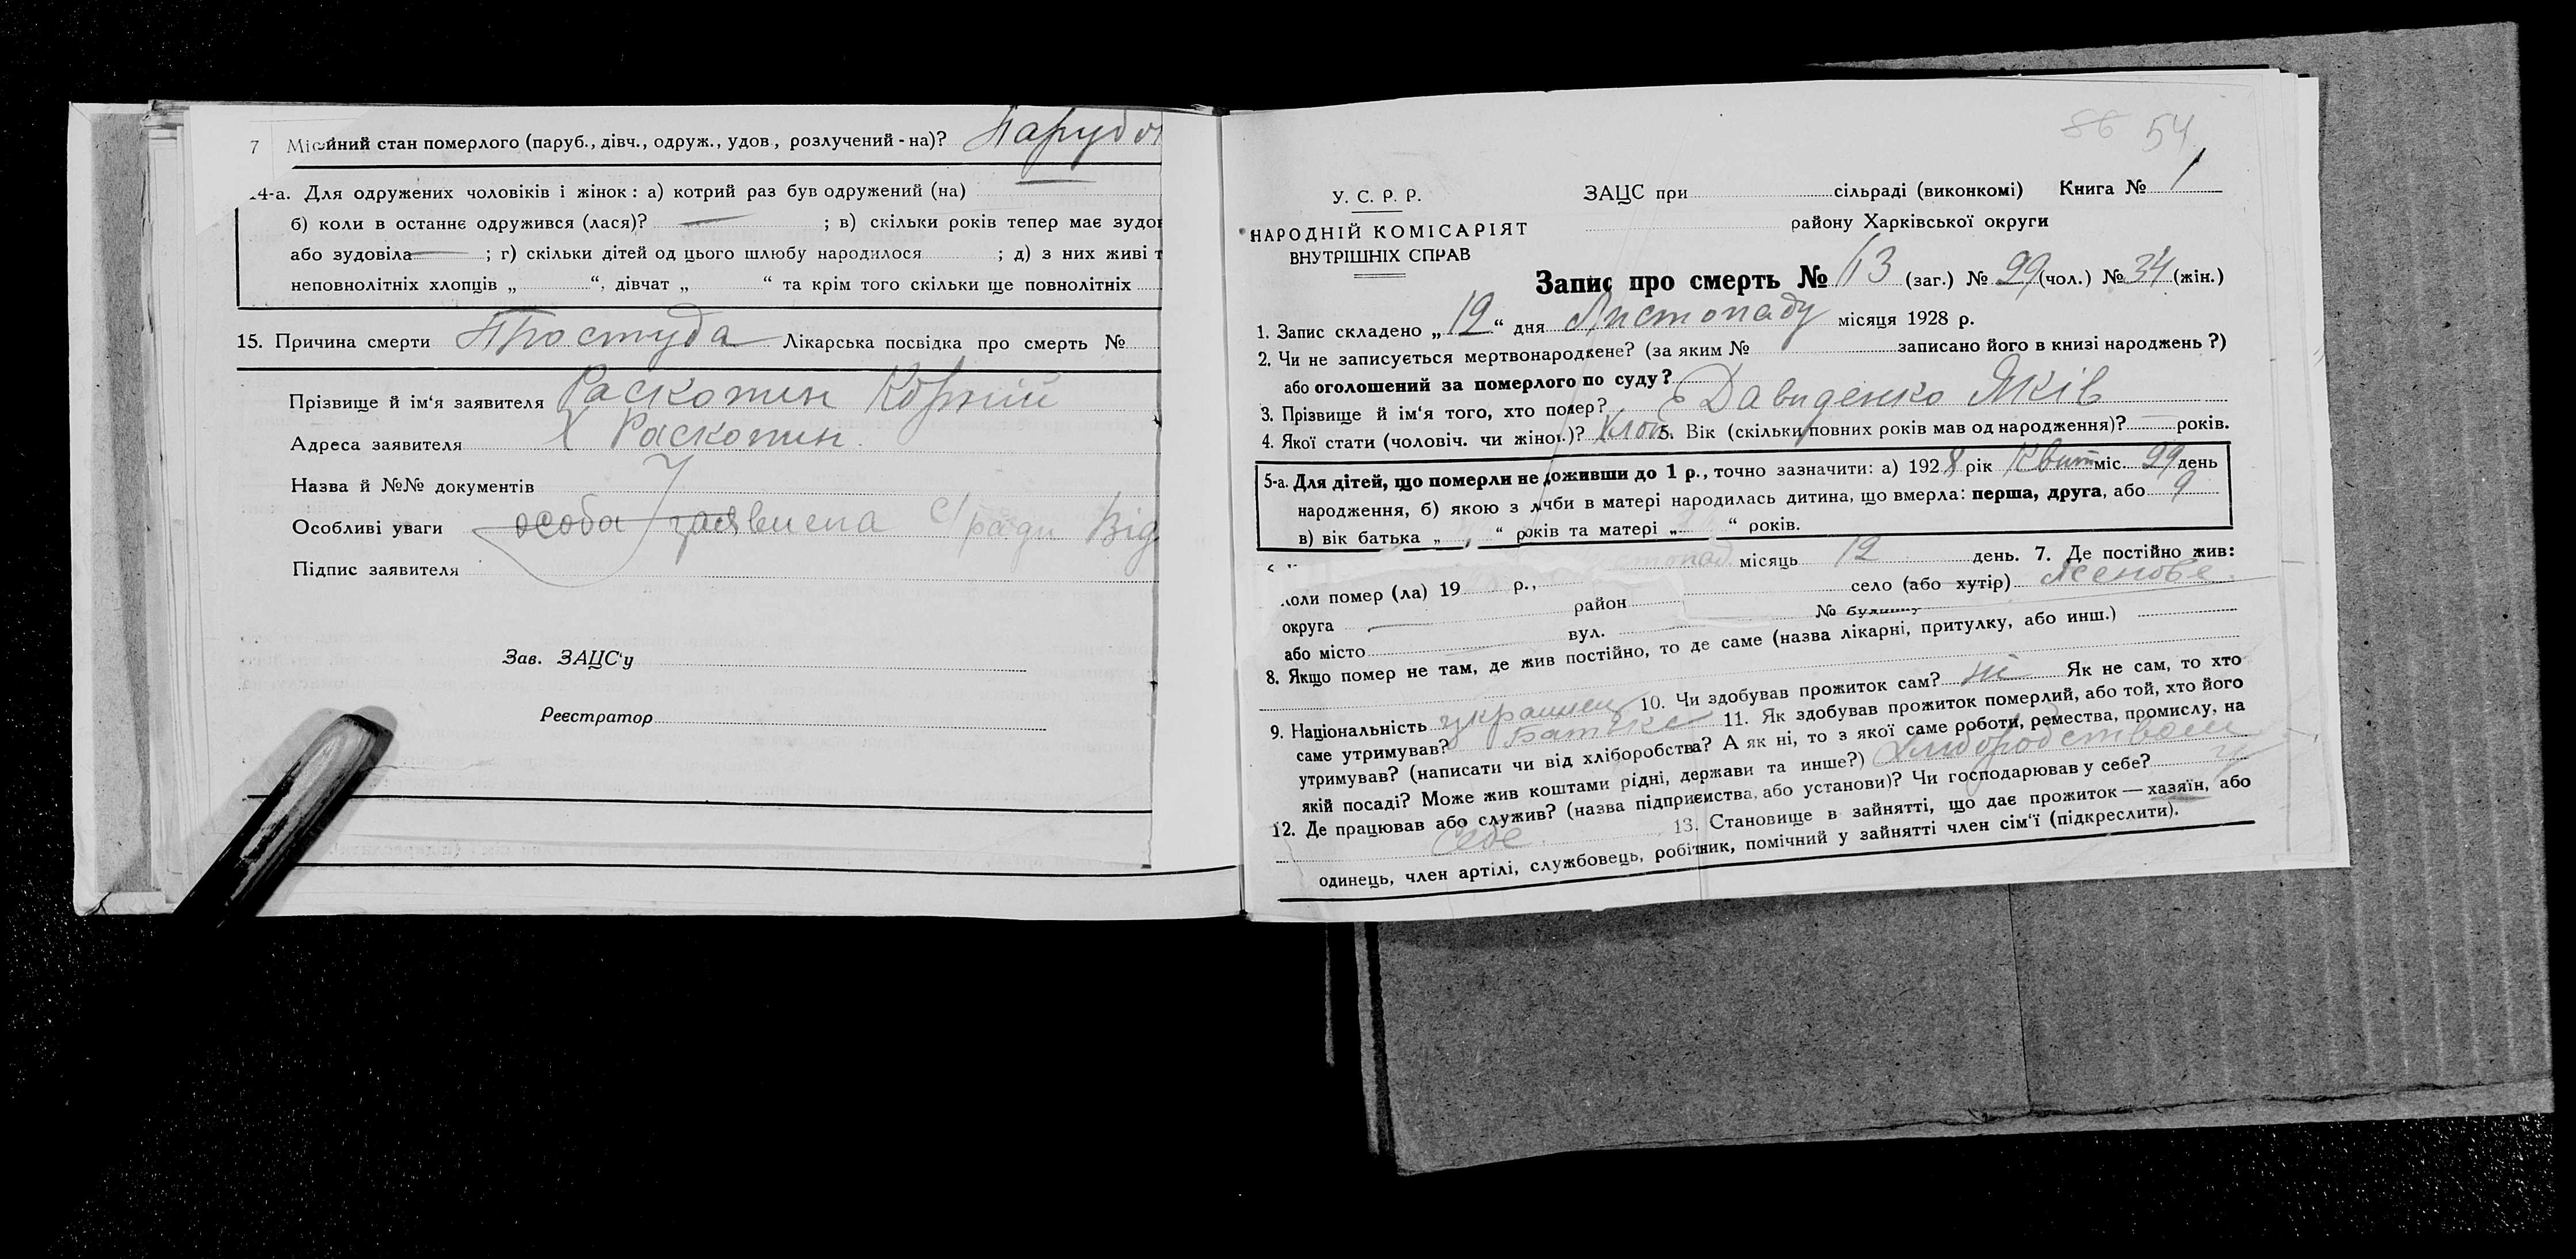 7 Місійний стан померлого (паруб., дівч., одруж., удов., розлучений-на)? Парубо
4-а. Для одружених чоловіків і жінок: а) котрий раз був одружений (на)
б) коли в останнє одружився (лася)? — ; в) скільки років тепер має зудов
або зудовіла — ; г) скільки дітей од цього шлюбу народилося ; д) з них живі т
неповнолітніх хлопців „ “, дівчат „ “ та крім того скільки ще повнолітніх
15. Причина смерти Простуда Лікарська посвідка про смерть №
Прізвище й ім'я заявителя Раскотин Корній
Адреса заявителя Х Раскотин
Назва й №№ документів
Особливі уваги особа заявиена с/ради Від
Підпис заявителя
Зав. ЗАЦС'у
Реєстратор
86 54
У. С. Р. Р.
НАРОДНІЙ КОМІСАРІЯТ
ВНУТРІШНІХ СПРАВ
ЗАЦС при сільраді (виконкомі) Книга № 1
району Харківської округи
Запис про смерть № 13 (заг.) № 29 (чол.) № 34 (жін.)
1. Запис складено „12“ дня Листопаду місяця 1928 р.
2. Чи не записується мертвонароджене? (за яким № записано його в книзі народжень?)
або оголошений за померлого по суду?
3. Прізвище й ім'я того, хто помер? Давиденко Яків
4. Якої стати (чоловіч. чи жіноч.)? Хлоп 5. Вік (скільки повних років мав од народження)? — років.
5-а. Для дітей, що померли не доживши до 1 р., точно зазначити: а) 1928 рік Квит міс. 29 день
народження, б) якою з лічби в матері народилась дитина, що вмерла: перша, друга, або 9
в) вік батька „ “ років та матері „ “ років.
коли помер (ла) 19 р., місяць 12 день. 7. Де постійно жив:
округа — район село (або хутір) Ясенове
або місто вул. № будинку
8. Якщо помер не там, де жив постійно, то де саме (назва лікарні, притулку, або инш.)
9. Національність украинец 10. Чи здобував прожиток сам? ні Як не сам, то хто
саме утримував? Батько 11. Як здобував прожиток померлий, або той, хто його
утримував? (написати чи від хліборобства? А як ні, то з якої саме роботи, ремества, промислу, на
якій посаді? Може жив коштами рідні, держави та инше?) Хлібородством
12. Де працював або служив? (назва підприємства, або установи)? Чи господарював у себе? у
себе 13. Становище в зайнятті, що дає прожиток — хазяїн, або
одинець, член артілі, службовець, робітник, помічний у зайнятті член сім'ї (підкреслити).